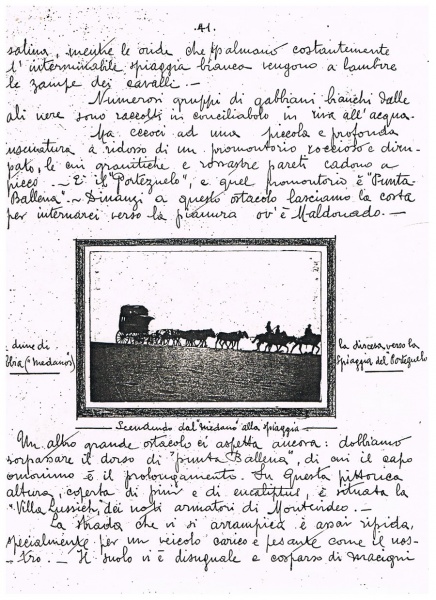 .41.
salina, mentre le onde che spalmano costantemente
l'interminabile spiaggia bianca vengono a lambire
le zampe dei cavalli. —
Numerosi gruppi di gabbiani bianchi dalle
ali nere sono raccolti in conciliabolo in riva all'acqua.
Ma eccoci ad una piccola e profonda
insenatura a ridosso di un promontorio roccioso e diru-
pato, le cui granitiche e rossastre pareti cadono a
picco. — È il "Portezuelo", e quel promontorio è "Punta
Ballena". — Dinanzi a questo ostacolo lasciamo la costa
per internarci verso la pianura ov'è Maldonado. —
. dune di
bbia ("medanos")
la discesa verso la
spiaggia del Portezuelo
Scendendo dal "medano" alla spiaggia
Un altro grande ostacolo ci aspetta ancora: dobbiamo
sorpassare il dorso di "punta Ballena", di cui il capo
omonimo è il prolungamento. Su questa pittorica
altura, coperta di pini e di eucaliptus, è situata la
"Villa Lussich", dei noti armatori di Montevideo. —
La strada che vi si arrampica è assai ripida,
specialmente per un veicolo carico e pesante come il nos-
tro. — Il suolo vi è disuguale e cosparso di macigni